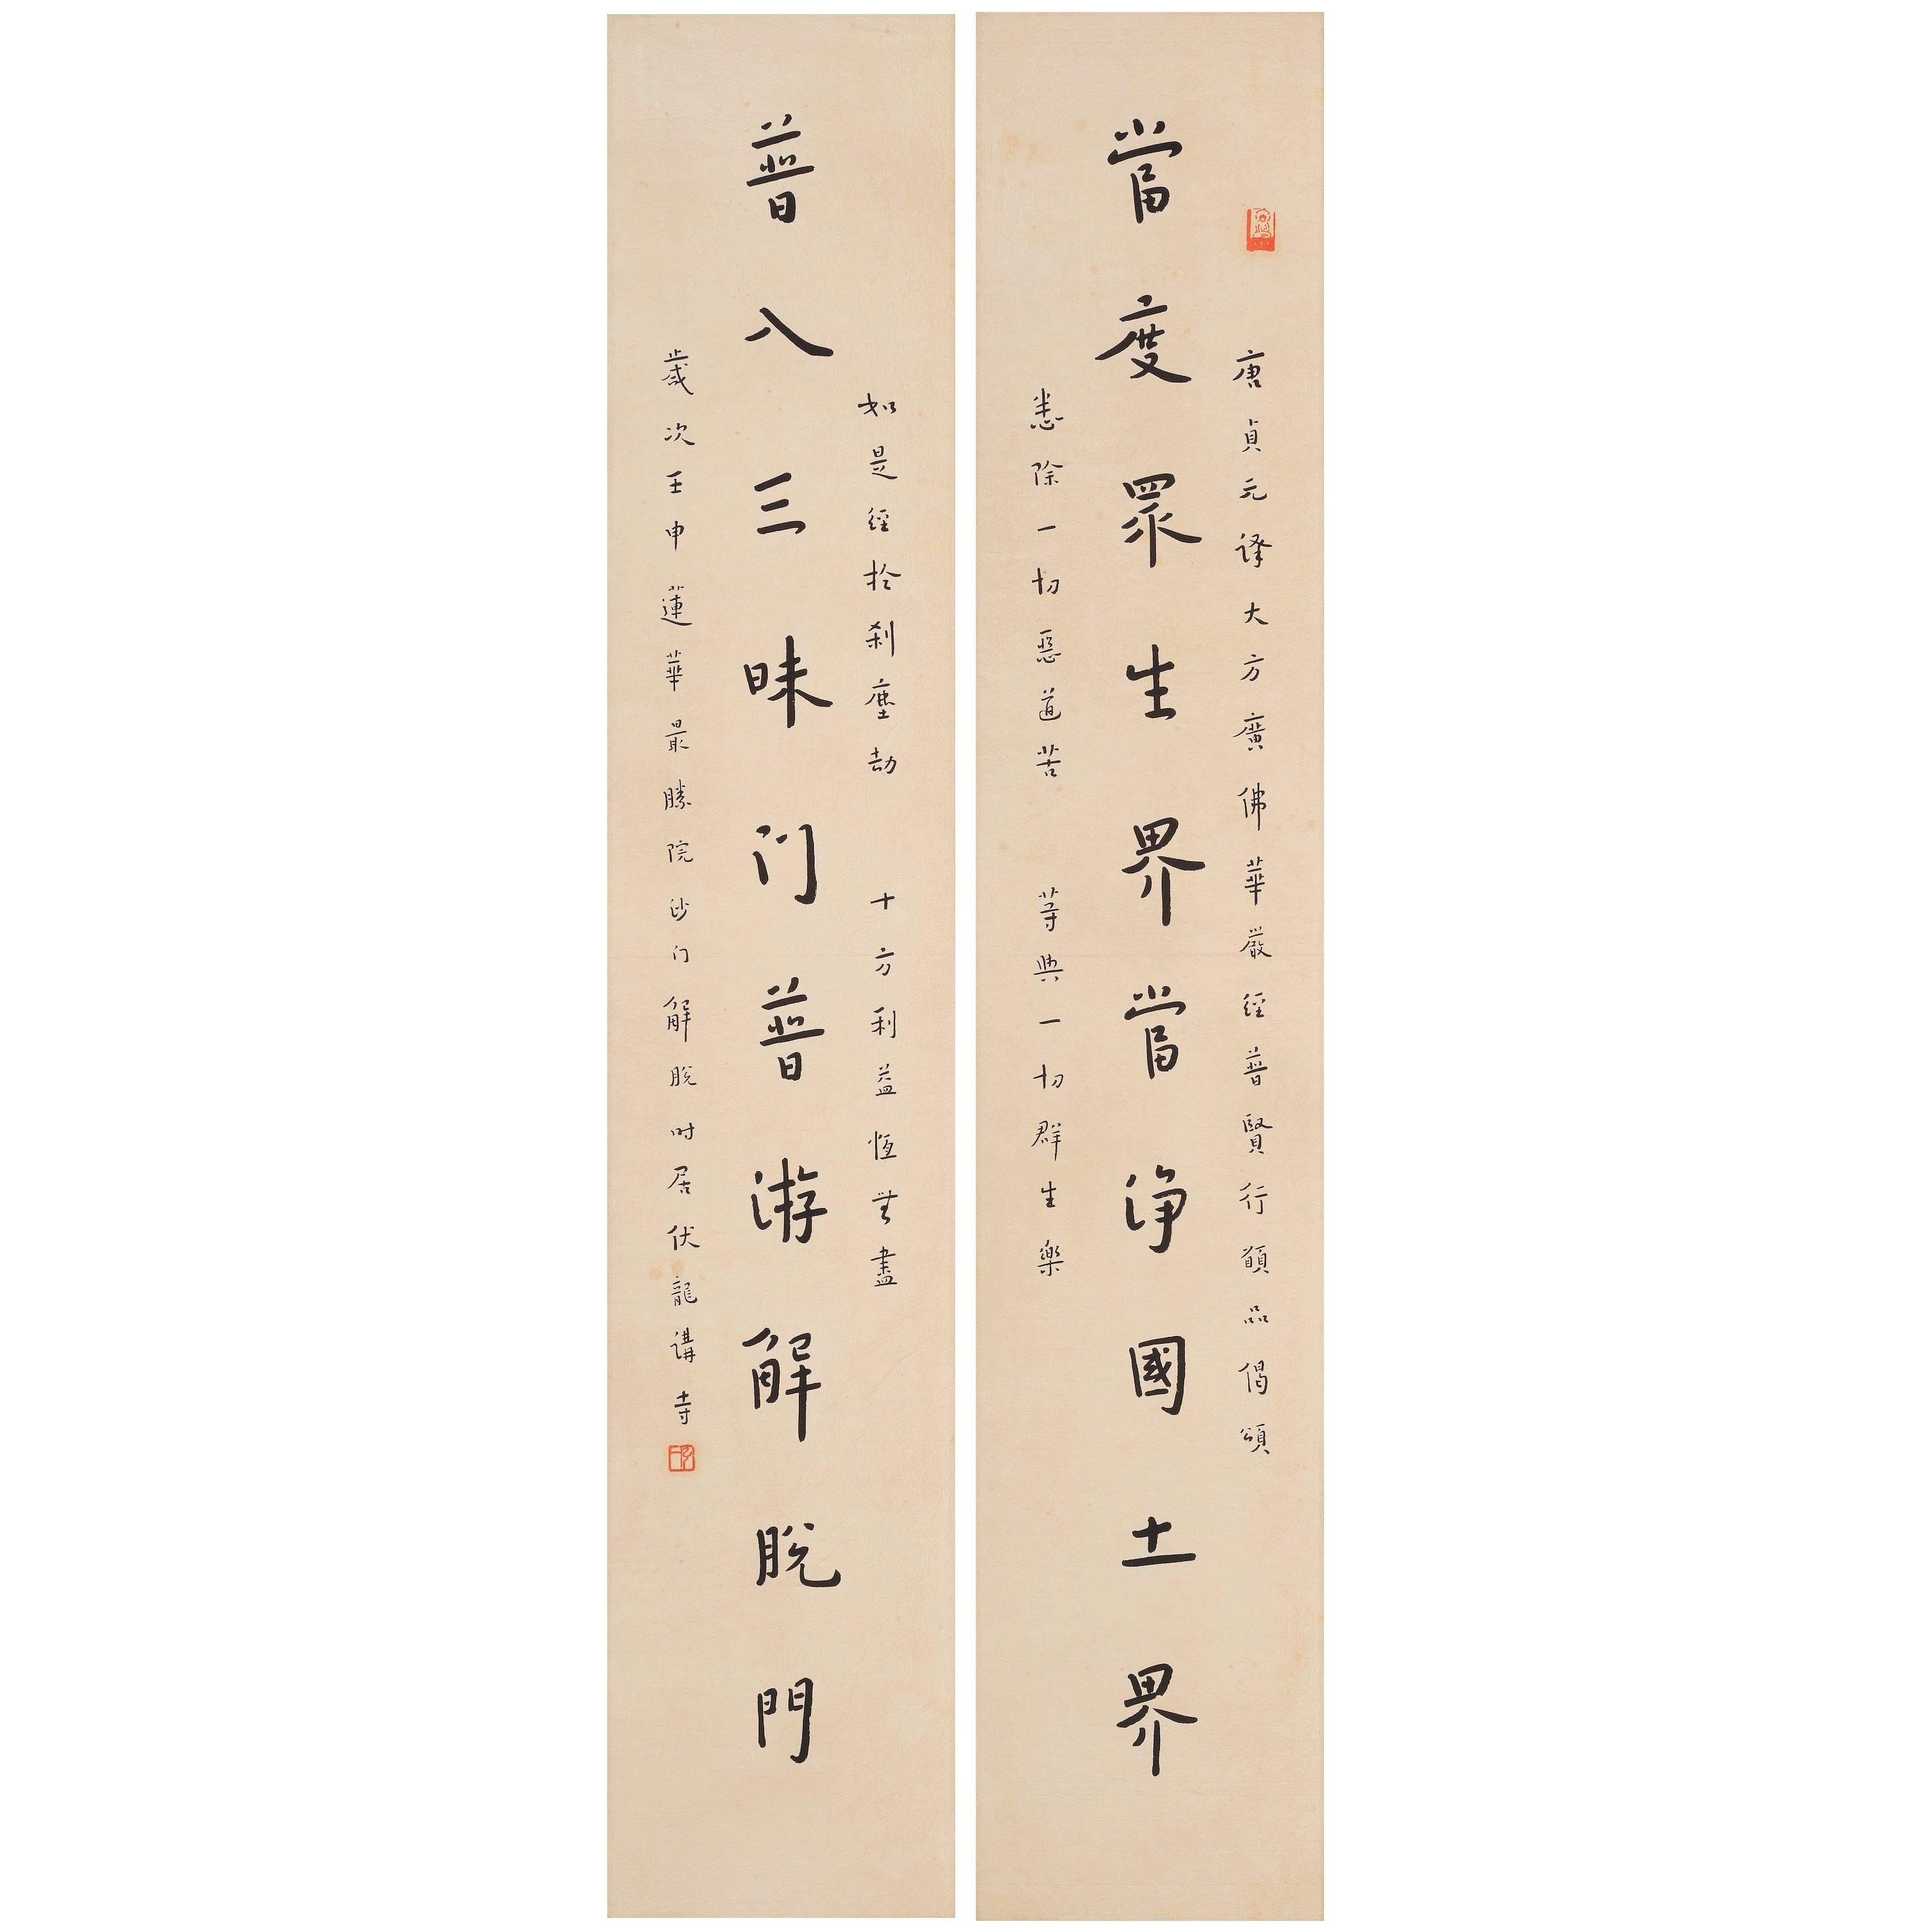 唐貞元譯大方廣佛華嚴經普賢行願品偈頌
當度眾生界當淨國土界
悉除一切惡道苦　等與一切群生樂
如是經於剎塵劫　十方利益恆無盡
普入三昧门普游解脫門
歲次壬申蓮華最勝院沙门解脫时居伏龍講寺